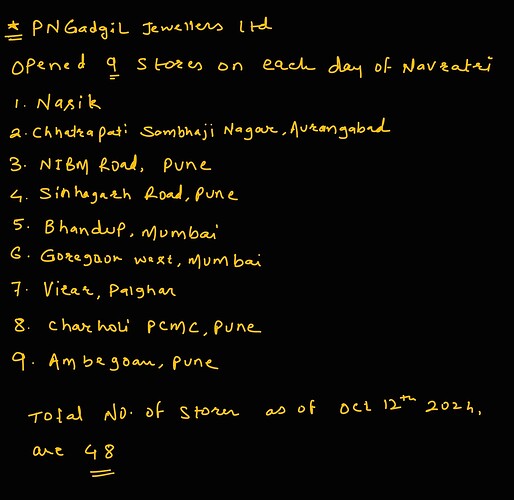 * PNGadgiL Jewellers Ltd
Opened 9 Stores on each day of Navratri
1. Nasik
2. Chhatrapati Sambhaji Nagar, Aurangabad
3. NIBM Road, Pune
4. Sinhagarh Road, Pune
5. Bhandup, Mumbai
6. Goregaon west, Mumbai
7. Virar, Palghar
8. Charholi PCMC, Pune
9. Ambegoan, Pune
Total No. of Stores as of Oct 12th 2024,
are 48